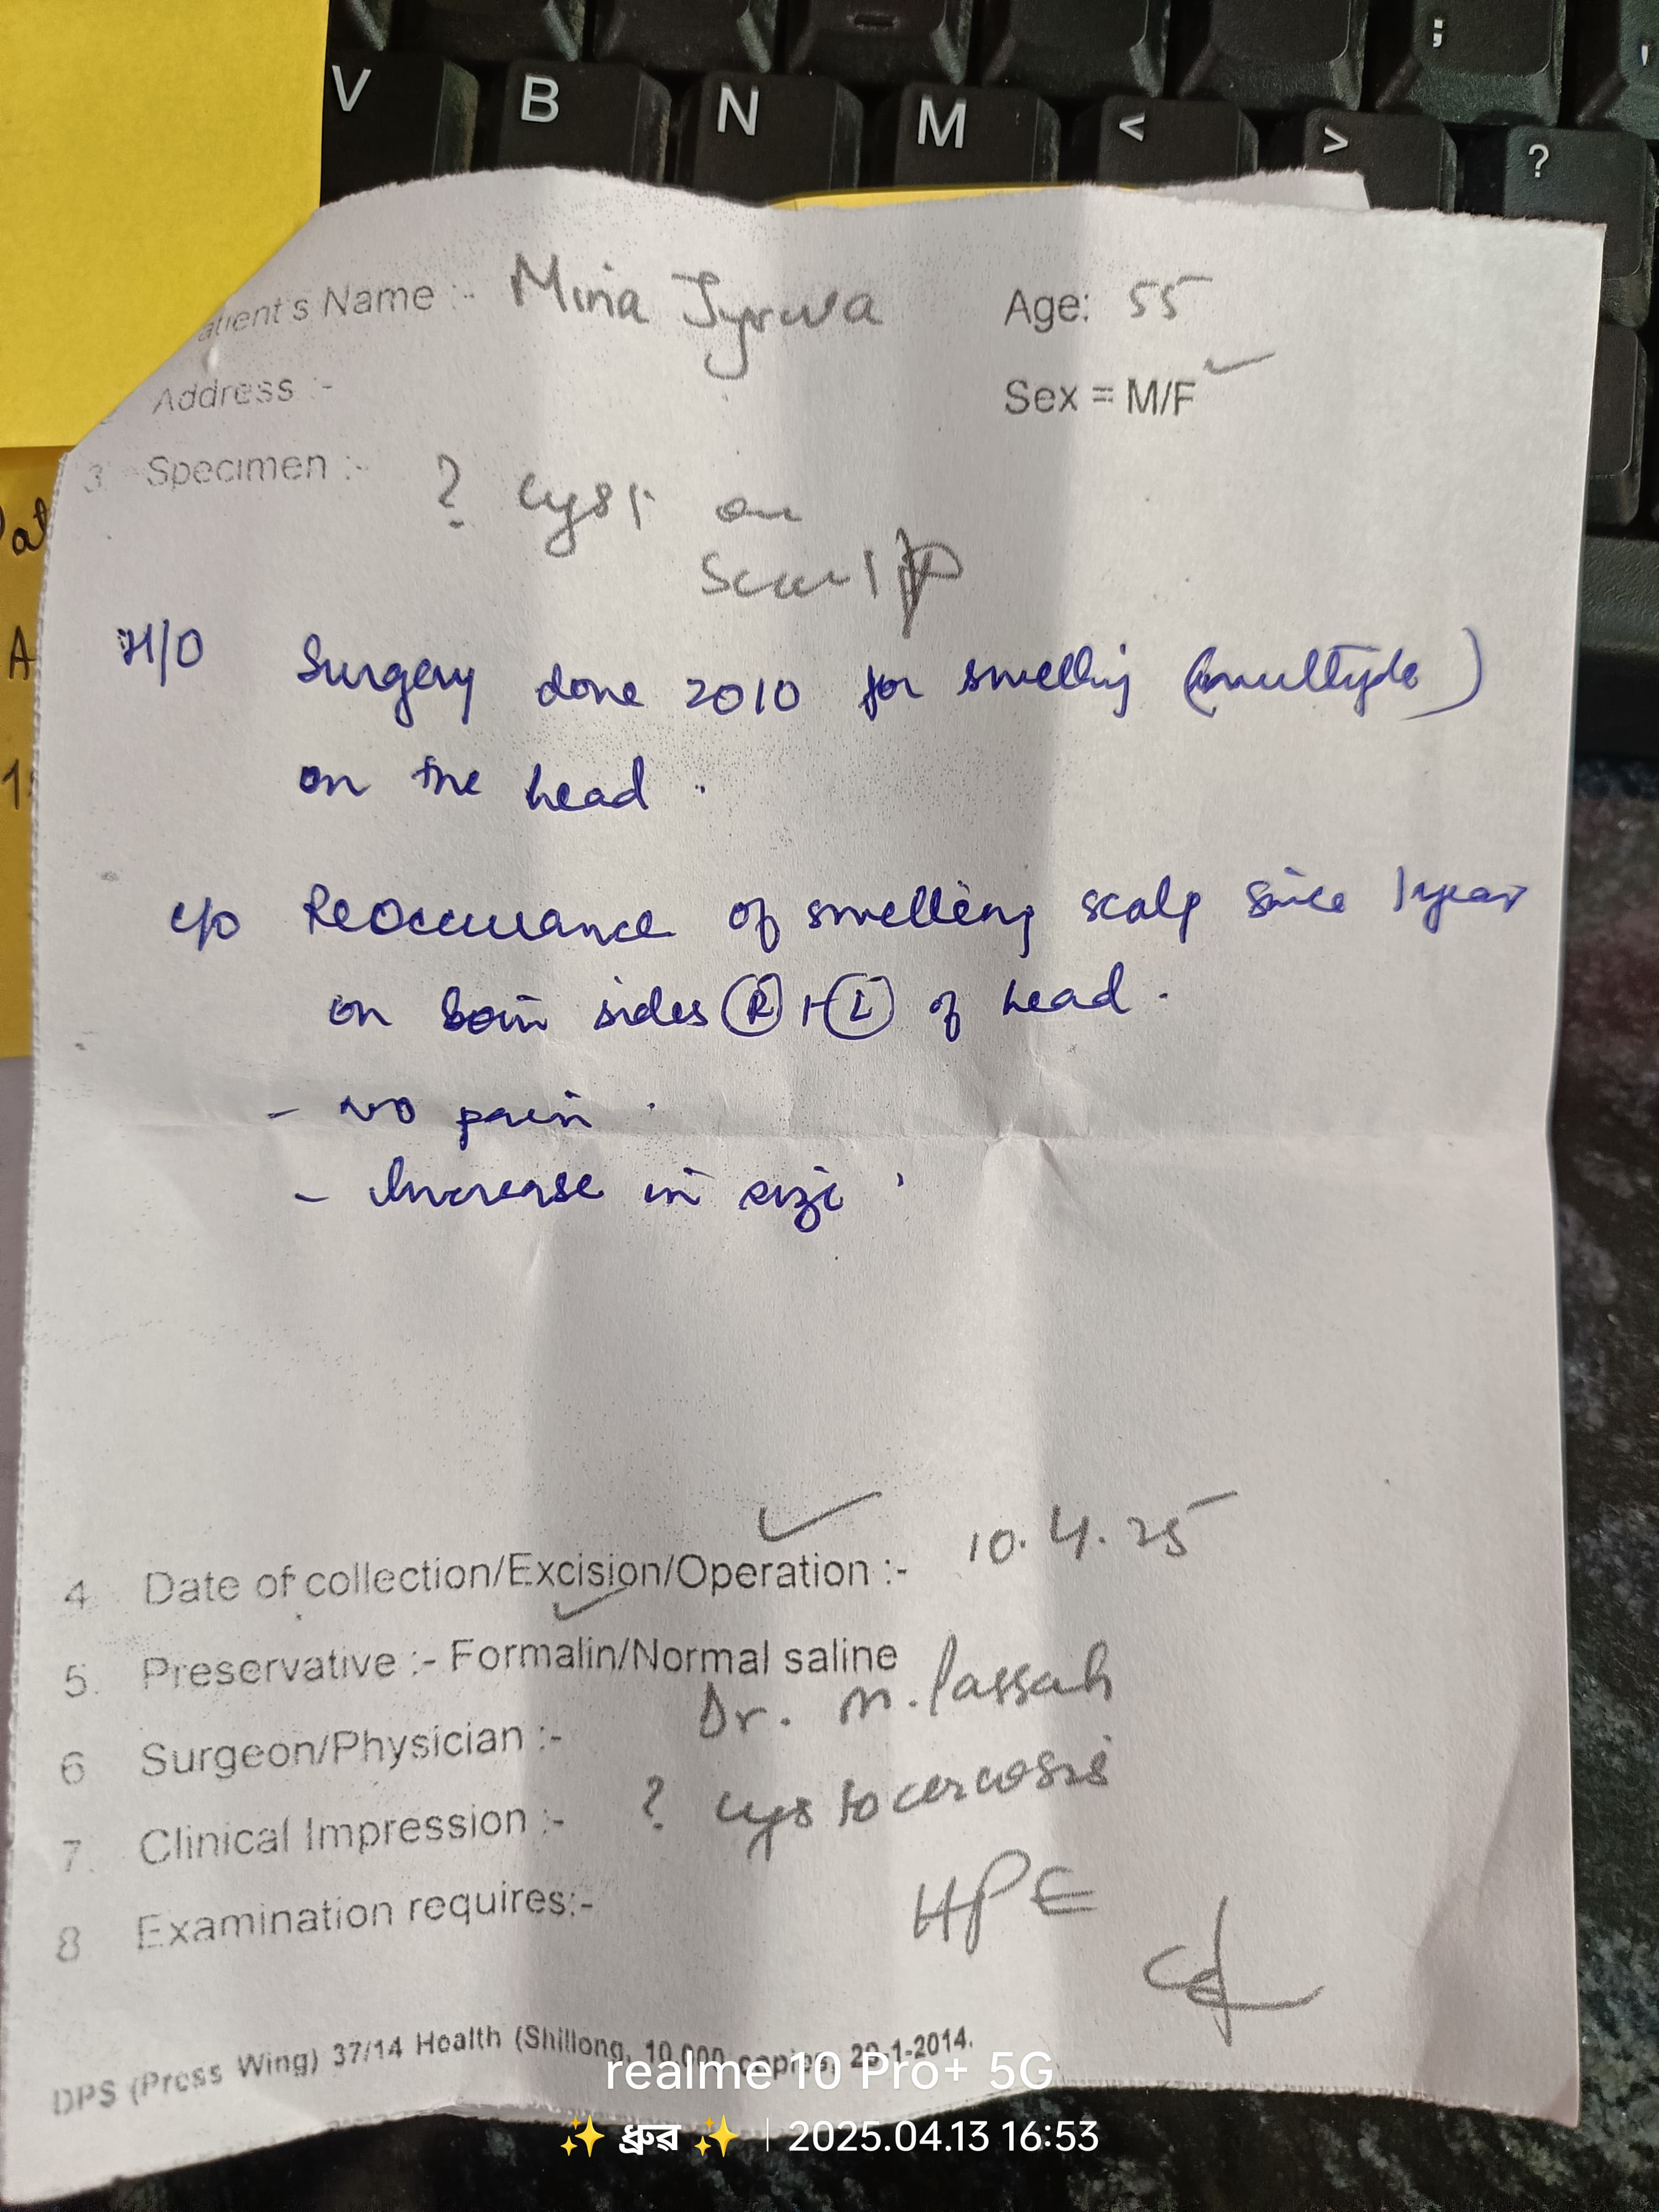 V B N M < > ? ;
atient's Name :- Miria Jyrwa Age: 55
Address :- Sex = M/F ✓
3. Specimen :- ? cyst on
Scalp
H/O Surgery done 2010 for swelling (multiple)
on the head.
c/o Reoccurance of swelling scalp since 1 year
on both sides (R) + (L) of head.
- No pain.
- Increase in size.
4. Date of collection/Excision/Operation :- 10.4.25
5. Preservative :- Formalin/Normal saline
6 Surgeon/Physician :- Dr. M. Passah
7. Clinical Impression :- ? cystocercosis
8 Examination requires:- HPE
DPS (Press Wing) 37/14 Health (Shillong, 10,000 copies, 29-1-2014.
realme 10 Pro+ 5G
✨ ধ্ৰুৱ ✨ | 2025.04.13 16:53